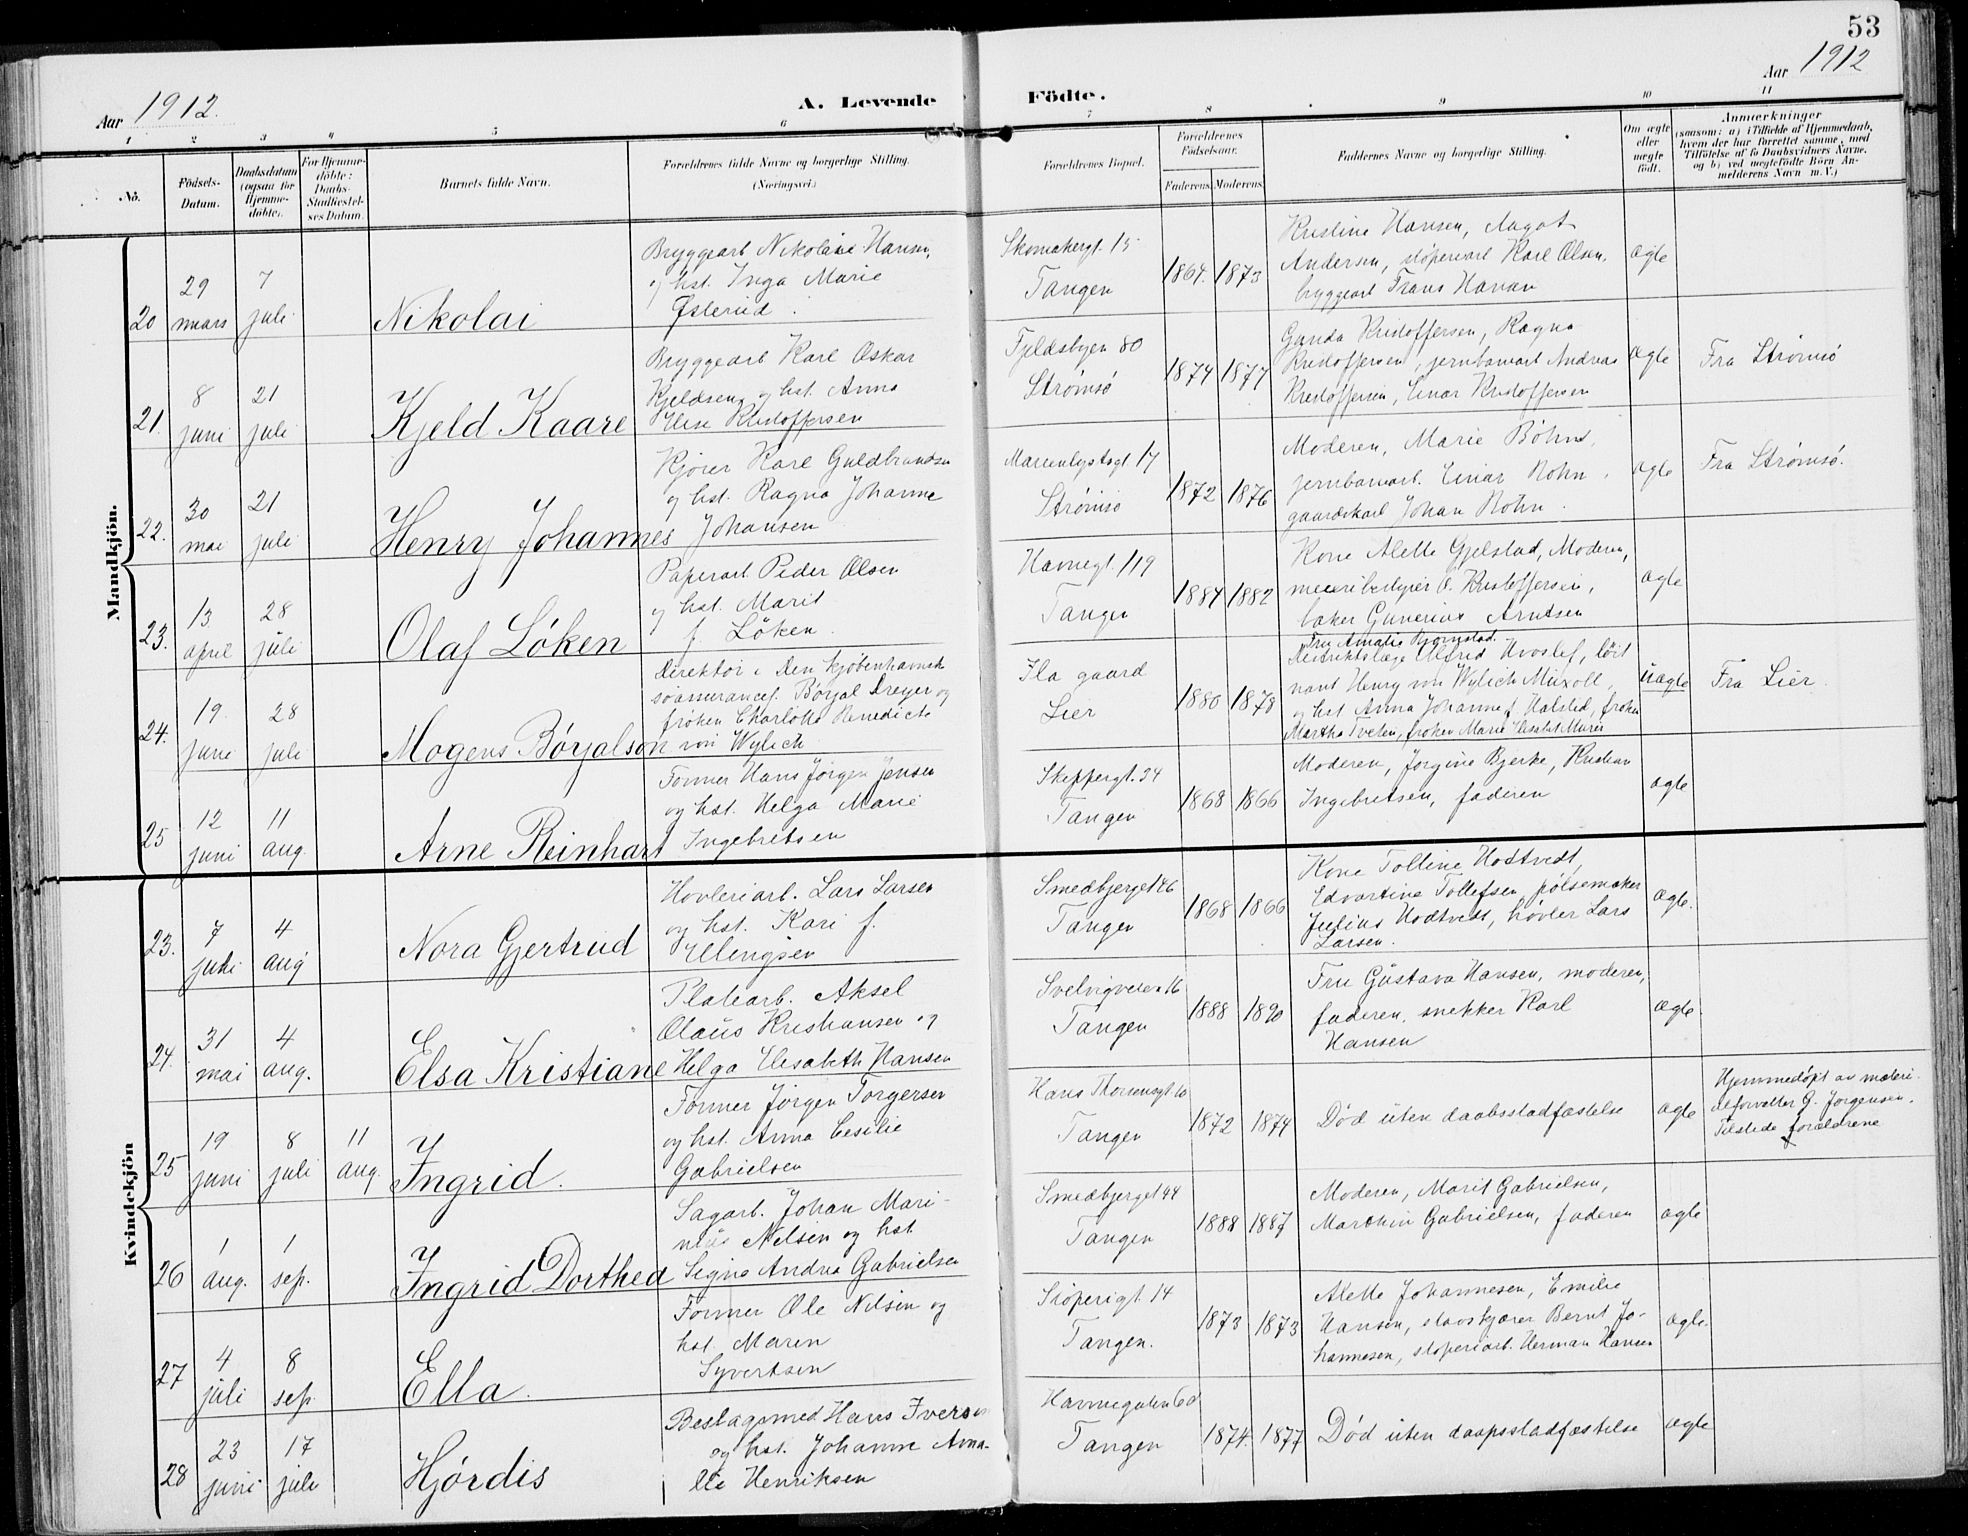 53
Aar 1912.
A. Levende Födte.
Aar 1912
1 2 3 4 5 6 7 8 9 10 11
Nö.
Födsels-Datum.
Daabsdatum (ogsaa for Hjemme-döbte).
For Hjemme-döbte: Daabs-Stadfæstel-ses Datum.
Barnets fulde Navn.
Forældrenes fulde Navne og borgerlige Stilling.
(Næringsvei.)
Forældrenes Bopæl.
Forældrenes Födselsaar.
Faderens. Moderens.
Faddernes Navne og borgerlige Stilling.
Om ægte eller uægte födt.
Anmærkninger
(saasom: a) i Tilfælde af Hjemmedaab,
hvem der har forrettet samme, med
Tilföielse af to Daabsvidners Navne,
og b) ved uægtefödte Börn An-
melderens Navn m. V.)
Mandkjön.
20 29 mars 7 juli Nikolai
Bryggearb Nikolai Hansen,
og hst. Inga Marie
Østerud.
Skomakergt. 15
Tangen
1864. 1873
Kristine Hansen, Aagot
Andersen, støperiarb Karl Olsen,
bryggearb Frans Hansen
ægte
21. 8 juni 21 juli Kjeld Kaare
Bryggearb Karl Oskar
Kjeldsen og hst. Anna
Elise Kristoffersen
Fjeldsbyen 80
Strømsø
1874 1877
Gunda Kristoffersen, Ragna
Kristoffersen, jernbanearb Andreas
Kristoffersen, Einar Kristoffersen
ægte
Fra Strømsø
22. 30 mai 21 juli Henry Johannes
Kjører Karl Guldbrandsen
og hst. Ragna Johanne
Johansen
Marienlystsgt 17
Strømsø
1872 1876
Moderen, Marie Böhn,
jernbanearb. Einar Bohn,
gaardskarl Johan Bohn.
ægte
Fra Strømsø.
23. 13 april 28 juli Olaf Löken
Papirarb. Peder Olsen
og hst. Marit
f. Löken.
Havnegt. 119
Tangen
1884 1882
Kone Alette Gjelstad, Moderen,
meieribestyrer O. Kristoffersen,
baker Gunerius Arntsen
ægte
24. 19. juni 28 juli Mogens Börjalson
Direktör i Den kjøbenhavnske
søassurancef. Börjal Dreyer og
frøken Charlotte Benedicte
von Wylich
Ila gaard
Lier
1880 1878
Fru Amalie Bjørnstad.
Distriktslæge Alfred Hvoslef, löit
nant Henry von Wylich Müxoll,
og hst Anna Johanne f. Halsted, frøken
Martha Tveten, frøken Marie Elisabet Münir
uægte
Fra Lier.
25 12 juni 11 aug. Arne Reinhart
Former Hans Jørgen Jensen
og hst. Helga Marie
Ingebretsen
Skippergt. 24
Tangen
1868 1866
Moderen, Jørgine Bjerke, Kristian
Ingebretsen, faderen
ægte
Kvindekjön
23. 7 juni 4 aug Nora Gjertrud
Hövleriarb. Lars Larsen
og hst. Kari f.
Ellingsen
Smedbjerget 46
Tangen
1868 1866
Kone Tolline Hodtvedt,
Edvartine Tollefsen, pølsemaker
Julius Hodtvedt, hövler Lars
Larsen.
ægte.
24. 31 mai 4 aug. Elsa Kristiane
Platearb. Aksel
Olaus Kristiansen og
Helga Elisabeth Hansen
Svelvigveien 16
Tangen
1888 1890
Fru Gustava Hansen, moderen,
faderen, snekker Karl
Hansen
ægte
25 19 juni 8 juli 11 aug. Ingrid.
Former Jørgen Torgersen
og hst. Anna Cesilie
Gabrielsen
Hans Thorensgt 10
Tangen
1872 1874
Død uten daabsstadfæstelse
ægte
Hjemmedøpt av materi-
alforvalter G. Jørgensen.
Tilstede forældrene
26 1 aug. 1 sep. Ingrid Dorthea
Sagarb. Johan Mari-
nius Nilsen og hst.
Signe Andrea Gabrielsen
Smedbjerget 44
Tangen
1888 1887
Moderen, Marit Gabrielsen,
Marthin Gabrielsen, faderen
ægte
27 4 juli 8 sep. Ella.
Former Ole Nilsen og
hst. Maren
Syvertsen
Støperigt. 14
Tangen.
1873 1873
Alette Johannesen, Emilie
Hansen, stavskjærer Bernt Jo-
hannesen, støperiarb. Herman Hansen
ægte.
28 23 juni 17 juli Hjördis
Beslagsmed Hans Iversen
og hst. Johanne Ama-
lie Henriksen
Havnegaten 60
Tangen
1874. 1877
Død uten daapsstadfæstelse
ægte